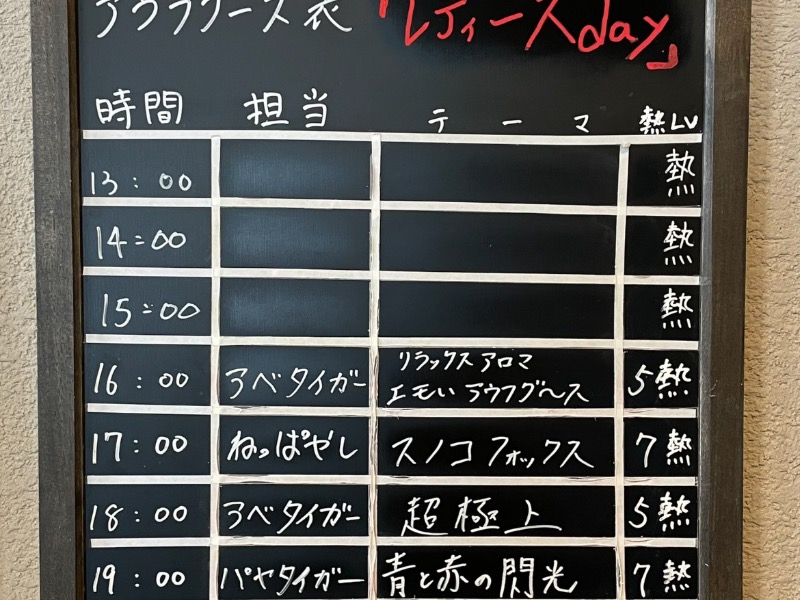 アウフグース表 「レディースday」
時間 担当 テーマ 熱LV
13:00 熱
14:00 熱
15:00 熱
16:00 アベタイガー リラックスアロマ エモいアウフグース 5熱
17:00 ねっぱやし スノコフォックス 7熱
18:00 アベタイガー 超極上 5熱
19:00 パヤタイガー 青と赤の閃光 7熱